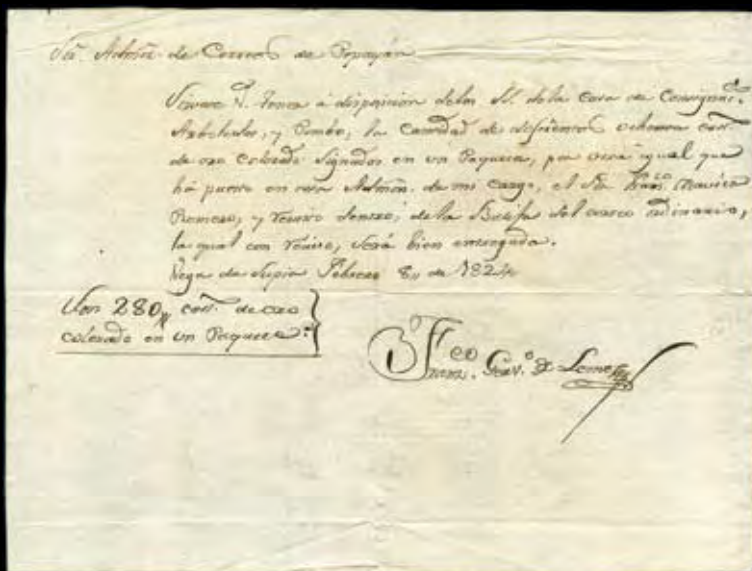 Sr. Admōr. de Correos de Popayán
Sirvase V. tener à disposicion delos SS. de la Casa de
Arboleda, y Pombo, la Cantidad de dosientos ochenta cast.
de oro Colorado signados en un Paquete, por otra igual que
há puesto en esta Admōn. de mi cargo, el Sr. Franco. Xavier
Romero, y remito dentro, de la Balija del correo ordinario,
la qual con recivo, será bien entregada.
Vega de Supia Febrero 8,, de 1824
Son 280,, cast. de oro
colorado en un Paquete.
Franco. de Lemos